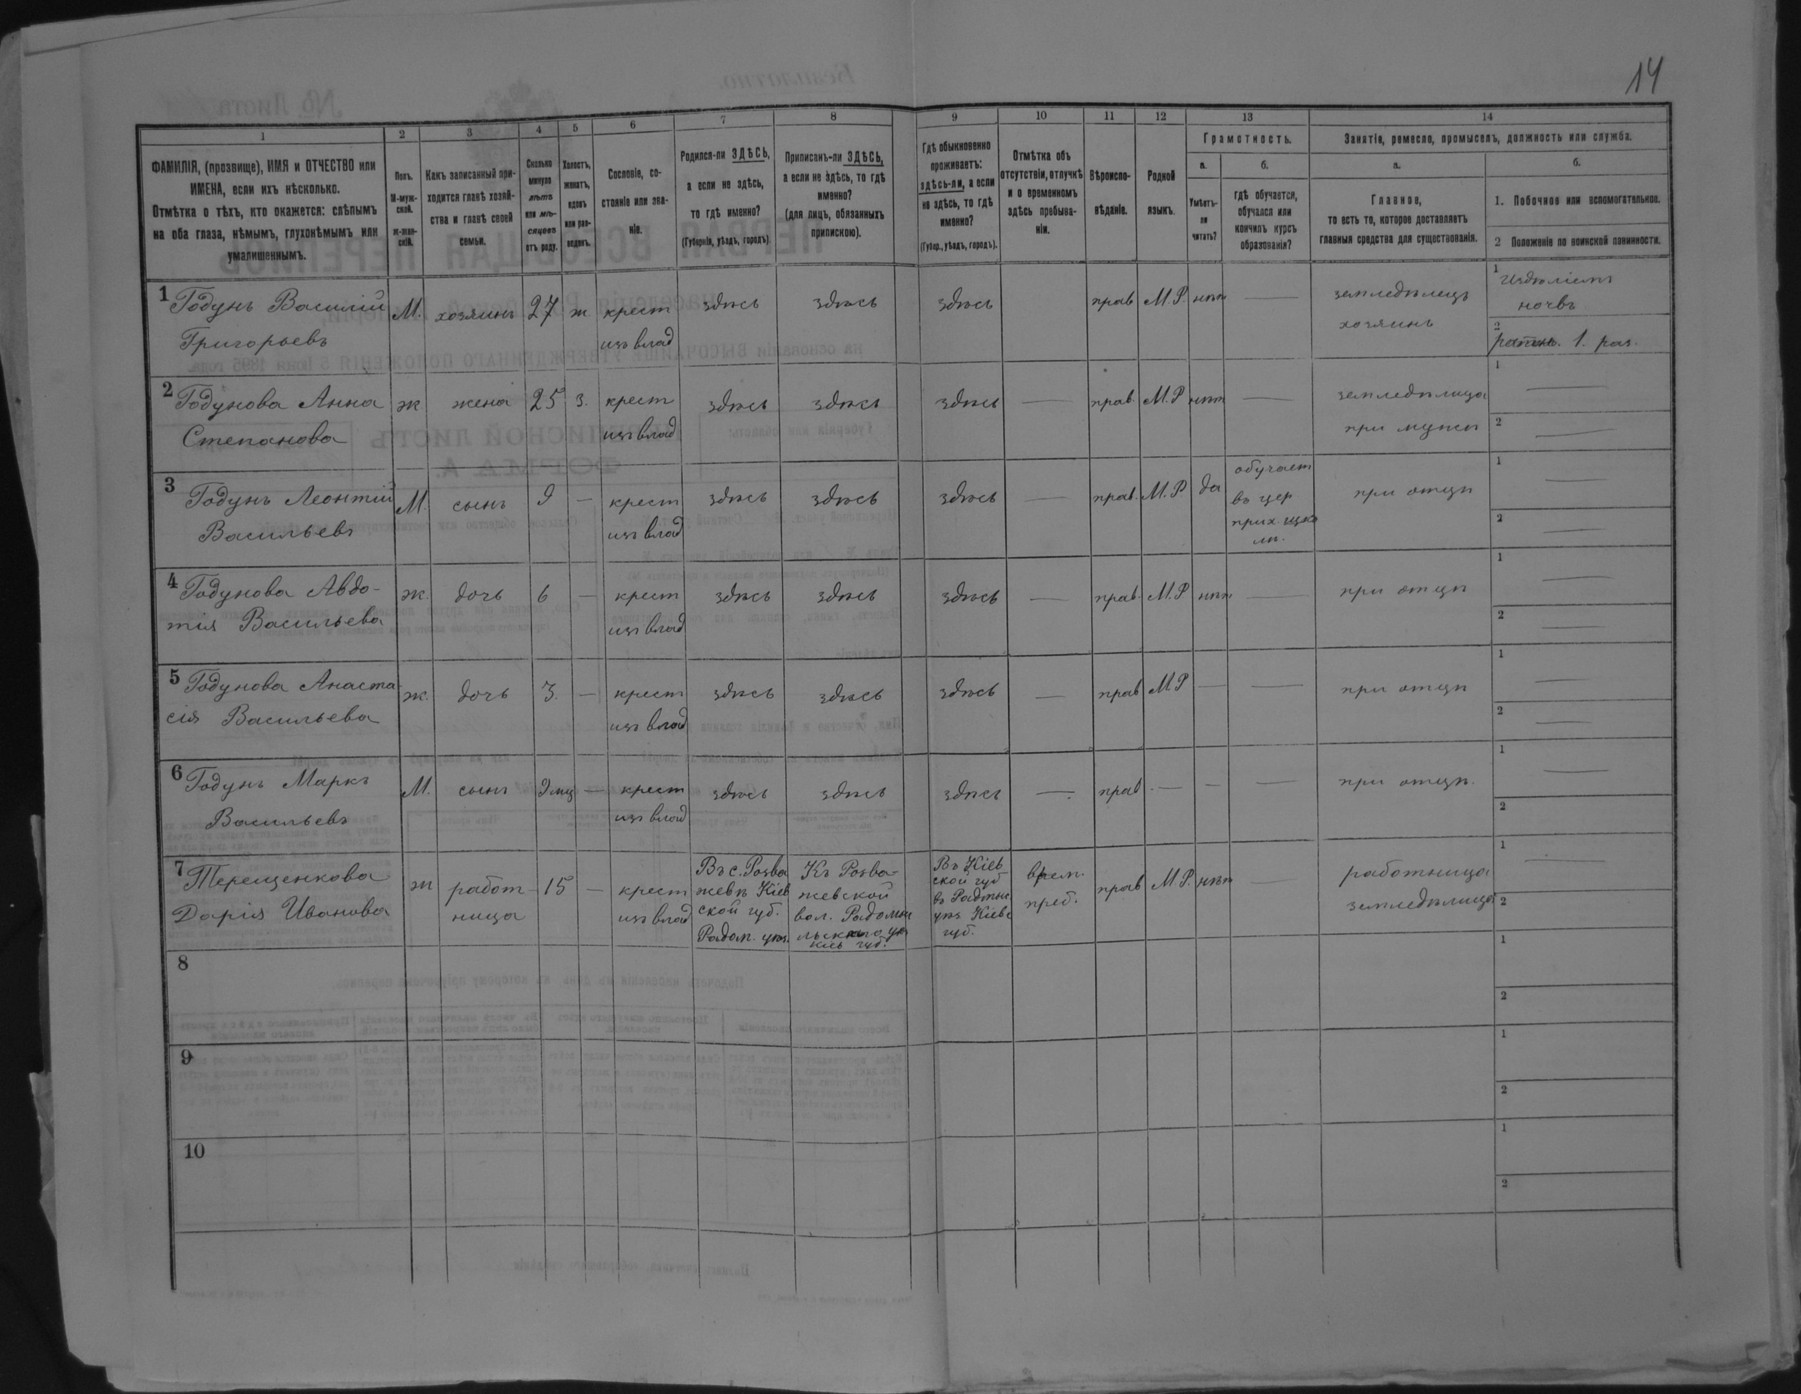 14
1 2 3 4 5 6 7 8 9 10 11 12 13 14
ФАМИЛІЯ, (прозвище), ИМЯ и ОТЧЕСТВО или
ИМЕНА, если ихъ нѣсколько.
Отмѣтка о тѣхъ, кто окажется: слѣпымъ
на оба глаза, нѣмымъ, глухонѣмымъ или
умалишеннымъ.
Полъ.
М-муж-
ской.
ж-жен-
скій.
Какъ записанный при-
ходится главѣ хозяй-
ства и главѣ своей
семьи.
Сколько
минуло
лѣтъ
или мѣ-
сяцевъ
отъ роду.
Холостъ,
женатъ,
вдовъ
или раз-
веденъ.
Сословіе, со-
стояніе или зва-
ніе.
Родился-ли ЗДѢСЬ,
а если не здѣсь,
то гдѣ именно?
(Губернія, уѣздъ, городъ).
Приписанъ-ли ЗДѢСЬ,
а если не здѣсь, то гдѣ
именно?
(для лицъ, обязанныхъ
припискою).
Гдѣ обыкновенно
проживаетъ:
здѣсь-ли, а если
не здѣсь, то гдѣ
именно?
(Губер., уѣздъ, городъ).
Отмѣтка объ
отсутствіи, отлучкѣ
и о временномъ
здѣсь пребыва-
ніи.
Вѣроиспо-
вѣданіе.
Родной
языкъ.
Грамотность.
а.
Умѣетъ-
ли
читать?
б.
гдѣ обучается,
обучался или
кончилъ курсъ
образованія?
Занятіе, ремесло, промыселъ, должность или служба.
а.
Главное,
то есть то, которое доставляетъ
главныя средства для существованія.
б.
1. Побочное или вспомогательное.
2 Положеніе по воинской повинности.
1 Годунъ Василій М. хозяинъ 27 ж крест здѣсь здѣсь здѣсь прав М.Р. нѣт — земледѣлецъ 1
Григорьевъ изъ влад хозяинъ
2 ратник. 1. раз.
2 Годунова Анна ж жена 25 з. крест здѣсь здѣсь здѣсь — прав М.Р нѣт — земледѣлица 1 —
Степанова изъ влад при мужѣ 2 —
3 Годунъ Леонтій М. сынъ 9 — крест здѣсь здѣсь здѣсь — прав. М.Р да обучает при отцѣ 1 —
Васильевъ изъ влад въ цер
прих. шко
лѣ. 2 —
4 Годунова Авдо- ж. дочь 6 — крест здѣсь здѣсь здѣсь — прав М.Р нѣт — при отцѣ 1 —
тія Васильева изъ влад 2 —
5 Годунова Анаста- ж. дочь 3. — крест здѣсь здѣсь здѣсь — прав М.Р — — при отцѣ 1 —
сія Васильева изъ влад 2 —
6 Годунъ Маркъ М. сынъ 9 мц — крест здѣсь здѣсь здѣсь — прав — — — при отцѣ. 1 —
Васильевъ изъ влад 2
7 Терещенкова ж работ- 15 — крест
Дарія Иванова ница изъ влад
Въ с. Розва
жевѣ Кіев
ской губ.
Радом. уѣз.
Къ Розва-
жевской
вол. Радомы
льскаго уѣ
Кіев губ.
Въ Кіев
ской губ
въ Радомы
уѣз. Кіевс
губ.
врем.
преб.
прав М.Р. нѣт —
работница
земледѣлица
1 —
2 —
8 1
2
9 1
2
10 1
2